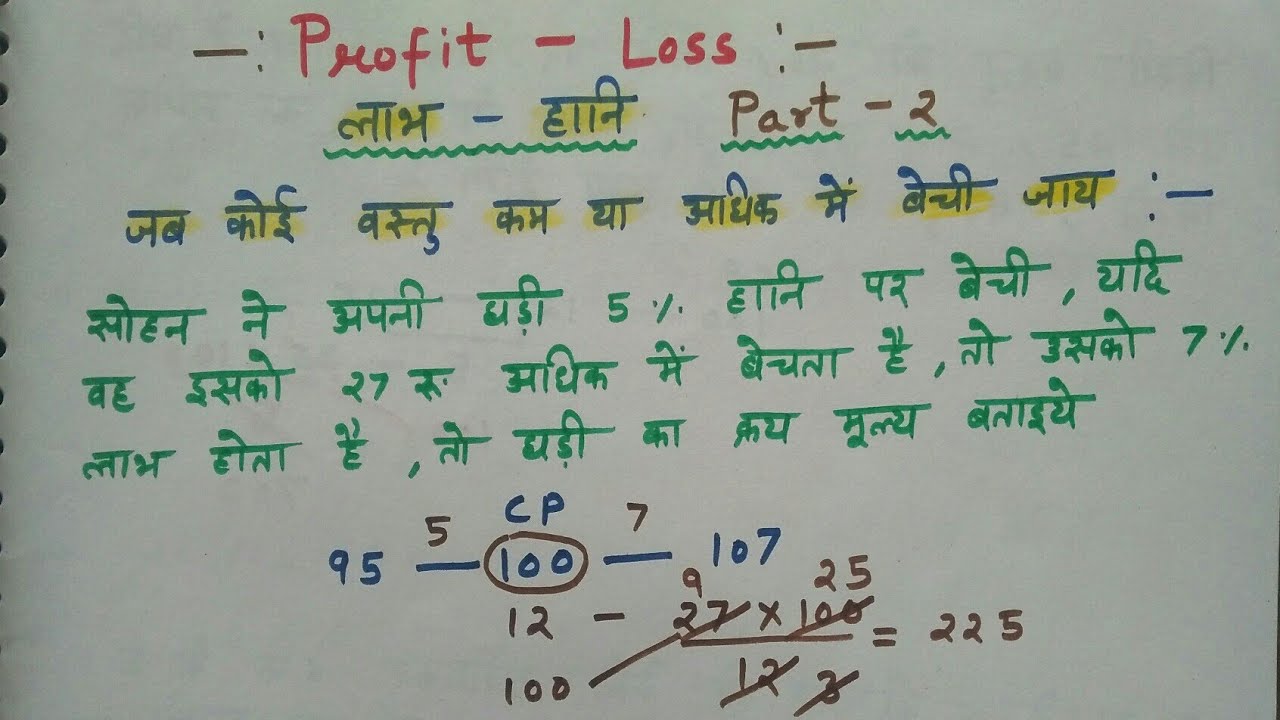 —: Profit - Loss :—
लाभ - हानि Part - 2
जब कोई वस्तु कम या अधिक में बेची जाय :—
सोहन ने अपनी घड़ी 5 % हानि पर बेची , यदि
वह इसको 27 रू अधिक में बेचता है , तो उसको 7 %
लाभ होता है , तो घड़ी का क्रय मूल्य बताइये
CP
5 7
95 — 100 — 107
9 25
12 - 27 × 100 = 225
100 12 3